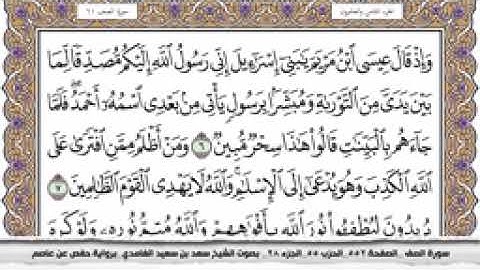 الجزء الثامن والعشرون سورة الصف ٦١
وَإِذْ قَالَ عِيسَى ٱبْنُ مَرْيَمَ يَٰبَنِىٓ إِسْرَٰٓءِيلَ إِنِّى رَسُولُ ٱللَّهِ إِلَيْكُم مُّصَدِّقًا لِّمَا
بَيْنَ يَدَىَّ مِنَ ٱلتَّوْرَىٰةِ وَمُبَشِّرًۢا بِرَسُولٍ يَأْتِى مِنۢ بَعْدِى ٱسْمُهُۥٓ أَحْمَدُ ۖ فَلَمَّا
جَآءَهُم بِٱلْبَيِّنَٰتِ قَالُوا۟ هَٰذَا سِحْرٌ مُّبِينٌ ٦ وَمَنْ أَظْلَمُ مِمَّنِ ٱفْتَرَىٰ عَلَى
ٱللَّهِ ٱلْكَذِبَ وَهُوَ يُدْعَىٰٓ إِلَى ٱلْإِسْلَٰمِ ۚ وَٱللَّهُ لَا يَهْدِى ٱلْقَوْمَ ٱلظَّٰلِمِينَ ٧
يُرِيدُونَ لِيُطْفِـُٔوا۟ نُورَ ٱللَّهِ بِأَفْوَٰهِهِمْ وَٱللَّهُ مُتِمُّ نُورِهِۦ وَلَوْ كَرِهَ
سورة الصف _الصفحة ٥٥٢_ الحزب ٥٥_الجزء ٢٨_ بصوت الشيخ سعد بن سعيد الغامدي_ برواية حفص عن عاصم